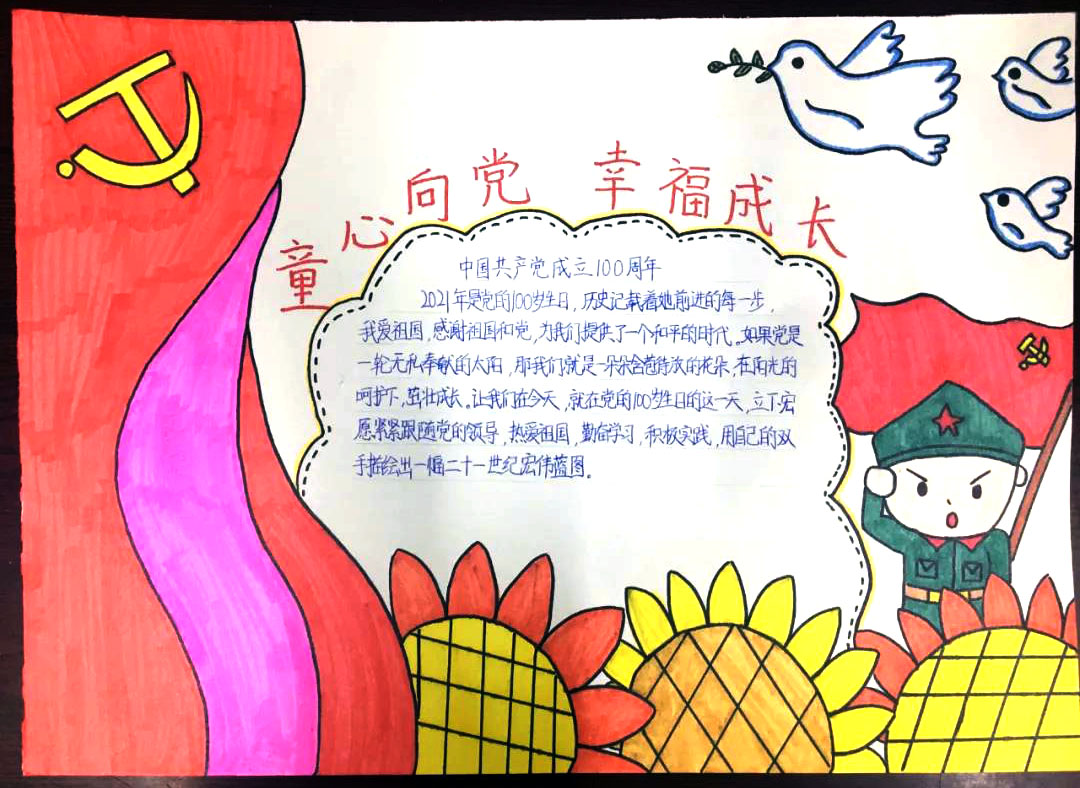 童心向党 幸福成长
中国共产党成立100周年
2021年是党的100岁生日，历史记载着她前进的每一步，
我爱祖国，感谢祖国和党，为我们提供了一个和平的时代。如果党是
一轮无私奉献的太阳，那我们就是一朵朵含苞待放的花朵，在阳光的
呵护下，茁壮成长。让我们在今天，就在党的100岁生日的这一天，立下宏
愿，紧紧跟随党的领导，热爱祖国，勤奋学习，积极实践，用自己的双
手描绘出一幅二十一世纪宏伟蓝图。